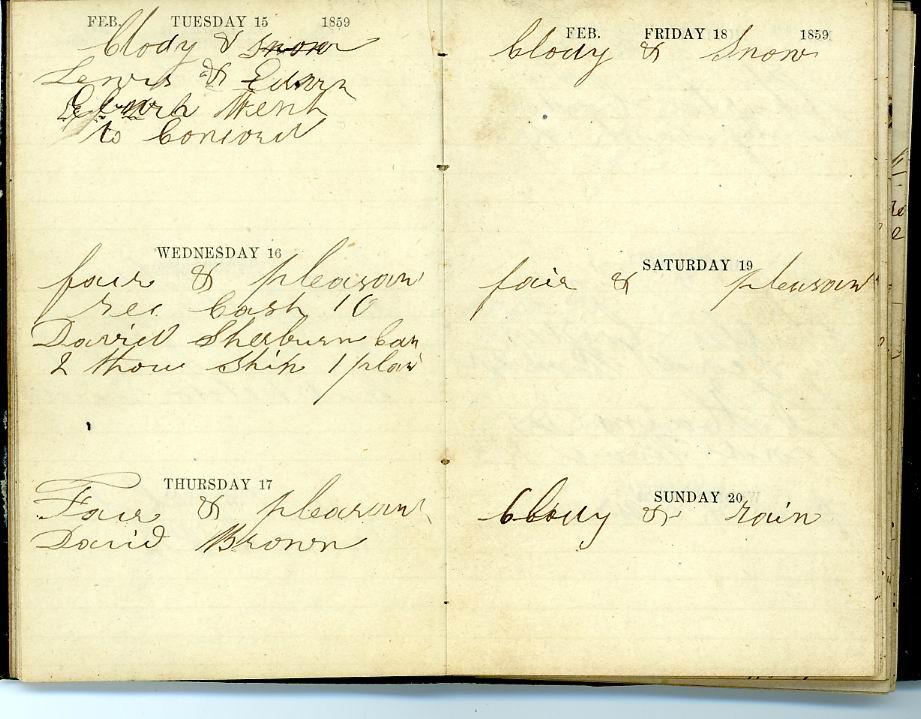 FEB. TUESDAY 15 1859
Clody & Snow
Lewis & Edwin
went
to Concord
WEDNESDAY 16
fair & pleasan
rec Cash 10
David Sherburn
2 thou Ship 1
THURSDAY 17
Fair & pleasant
David Brown
FEB. FRIDAY 18 1859
Clody & Snow
SATURDAY 19
fair & pleasan
SUNDAY 20
Clody & rain